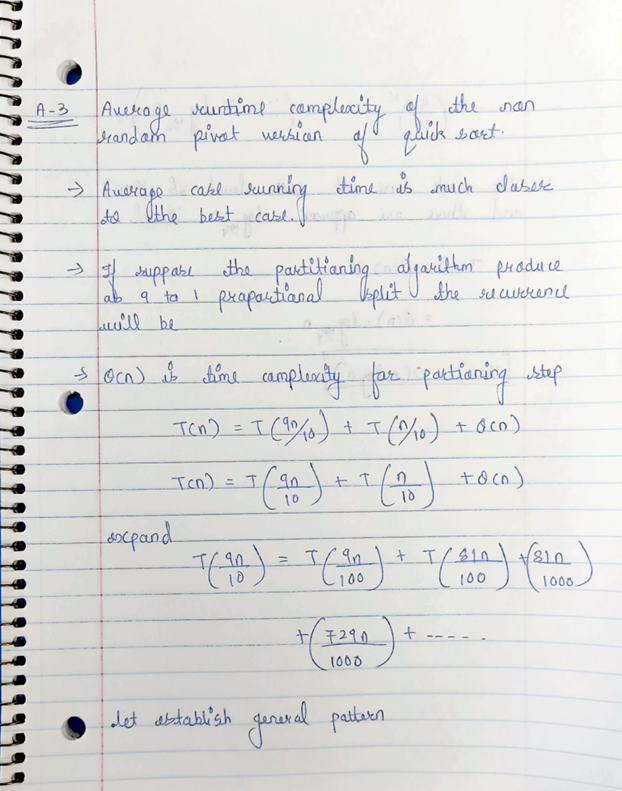 A-3 Average runtime complexity of the non
random pivot version of quick sort.
→ Average case running time is much closer
to the best case.
→ If suppose the partitioning algorithm produce
as 9 to 1 proportional split the recurrence
will be
→ θ(n) is time complexity for partioning step
T(n) = T(9n/10) + T(n/10) + θ(n)
T(n) = T(9n/10) + T(n/10) + θ(n)
expand
T(9n/10) = T(9n/100) + T(81n/100) + (81n/1000)
+ (729n/1000) + -----.
let establish general pattern